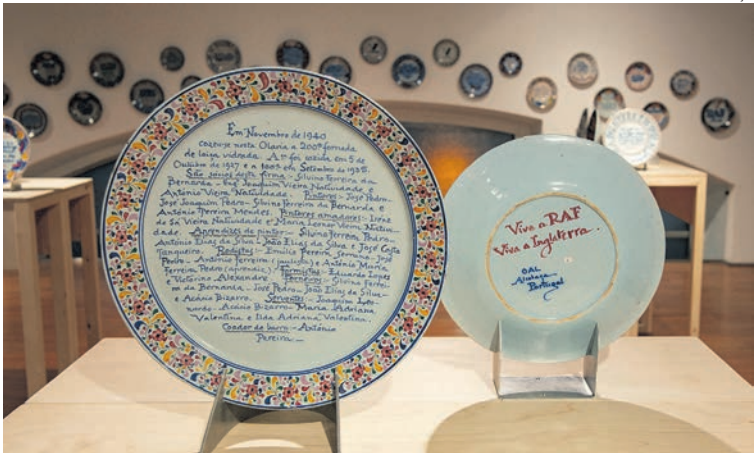 Em Novembro de 1940
cozeu-se nesta Olaria a 200ª fornada
de loiça vidrada. A 1ª foi cozida em 5 de
Outubro de 1927 e a 100ª em Setembro de 1935.
São sócios desta firma - Silvino Ferreira da
Bernarda - Engº Joaquim Vieira Natividade e
António Vieira Natividade. Pintores - José Pedro -
José Joaquim Pedro - Silvino Ferreira da Bernarda e
António Ferreira Mendes. Pintores amadores - Irene
de Sá Vieira Natividade e Maria Vieira Nativi-
dade. Aprendizes de pintor - Silvino Ferreira Pedro -
António Elias da Silva - João Elias da Silva e José Costa
Junqueiro. Rodistas - Emílio Pereira Serrano - José
Pedro - António Ferreira e António Maria
Ferreira Pedro (aprendiz). Formistas - Eduardo Lopes
e Victorino Alexandre. Forneiros - Silvino Ferrei-
ra da Bernarda - José Pedro - João Elias da Silva -
e Acácio Bizarro. Serventes - Joaquim Leo-
nardo - Acácio Bizarro - Maria Adriana
Valentina e Ilda Adriana Valentina.
Coador de barro - António
Pereira -
Viva a RAF
Viva a Inglaterra.
OAL
Alcobaça
Portugal